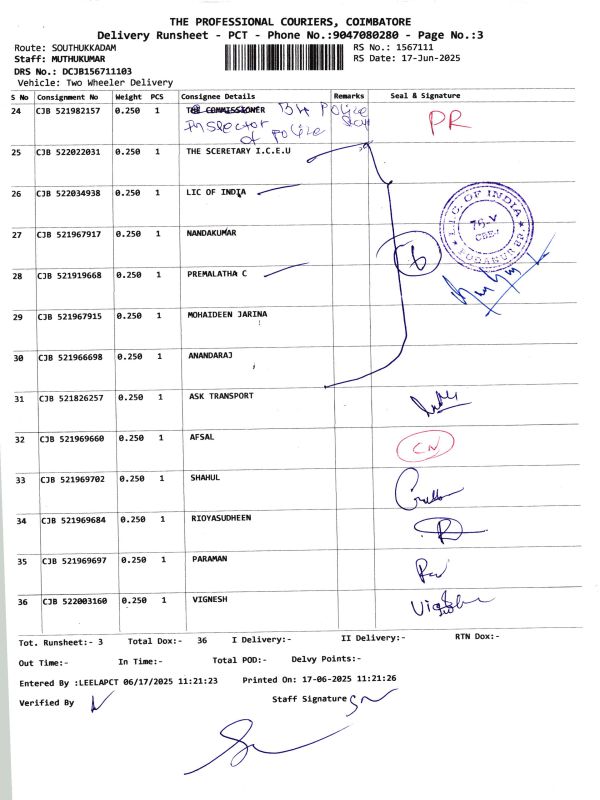 THE PROFESSIONAL COURIERS, COIMBATORE
Delivery Runsheet - PCT - Phone No.:9047080280 - Page No.:3
Route: SOUTHUKKADAM RS No.: 1567111
Staff: MUTHUKUMAR RS Date: 17-Jun-2025
DRS No.: DCJB156711103
Vehicle: Two Wheeler Delivery
S No Consignment No Weight PCS Consignee Details Remarks Seal & Signature
24 CJB 521982157 0.250 1 THE COMMISSIONER B4 Police PR
Inspector
of police
25 CJB 522022031 0.250 1 THE SCERETARY I.C.E.U
26 CJB 522034938 0.250 1 LIC OF INDIA
L.I.C. OF INDIA
27 CJB 521967917 0.250 1 NANDAKUMAR
6
28 CJB 521919668 0.250 1 PREMALATHA C
29 CJB 521967915 0.250 1 MOHAIDEEN JARINA
30 CJB 521966698 0.250 1 ANANDARAJ
31 CJB 521826257 0.250 1 ASK TRANSPORT
32 CJB 521969660 0.250 1 AFSAL CN
33 CJB 521969702 0.250 1 SHAHUL
34 CJB 521969684 0.250 1 RIOYASUDHEEN
35 CJB 521969697 0.250 1 PARAMAN
36 CJB 522003160 0.250 1 VIGNESH
Tot. Runsheet:- 3 Total Dox:- 36 I Delivery:- II Delivery:- RTN Dox:-
Out Time:- In Time:- Total POD:- Delvy Points:-
Entered By :LEELAPCT 06/17/2025 11:21:23 Printed On: 17-06-2025 11:21:26
Verified By Staff Signature